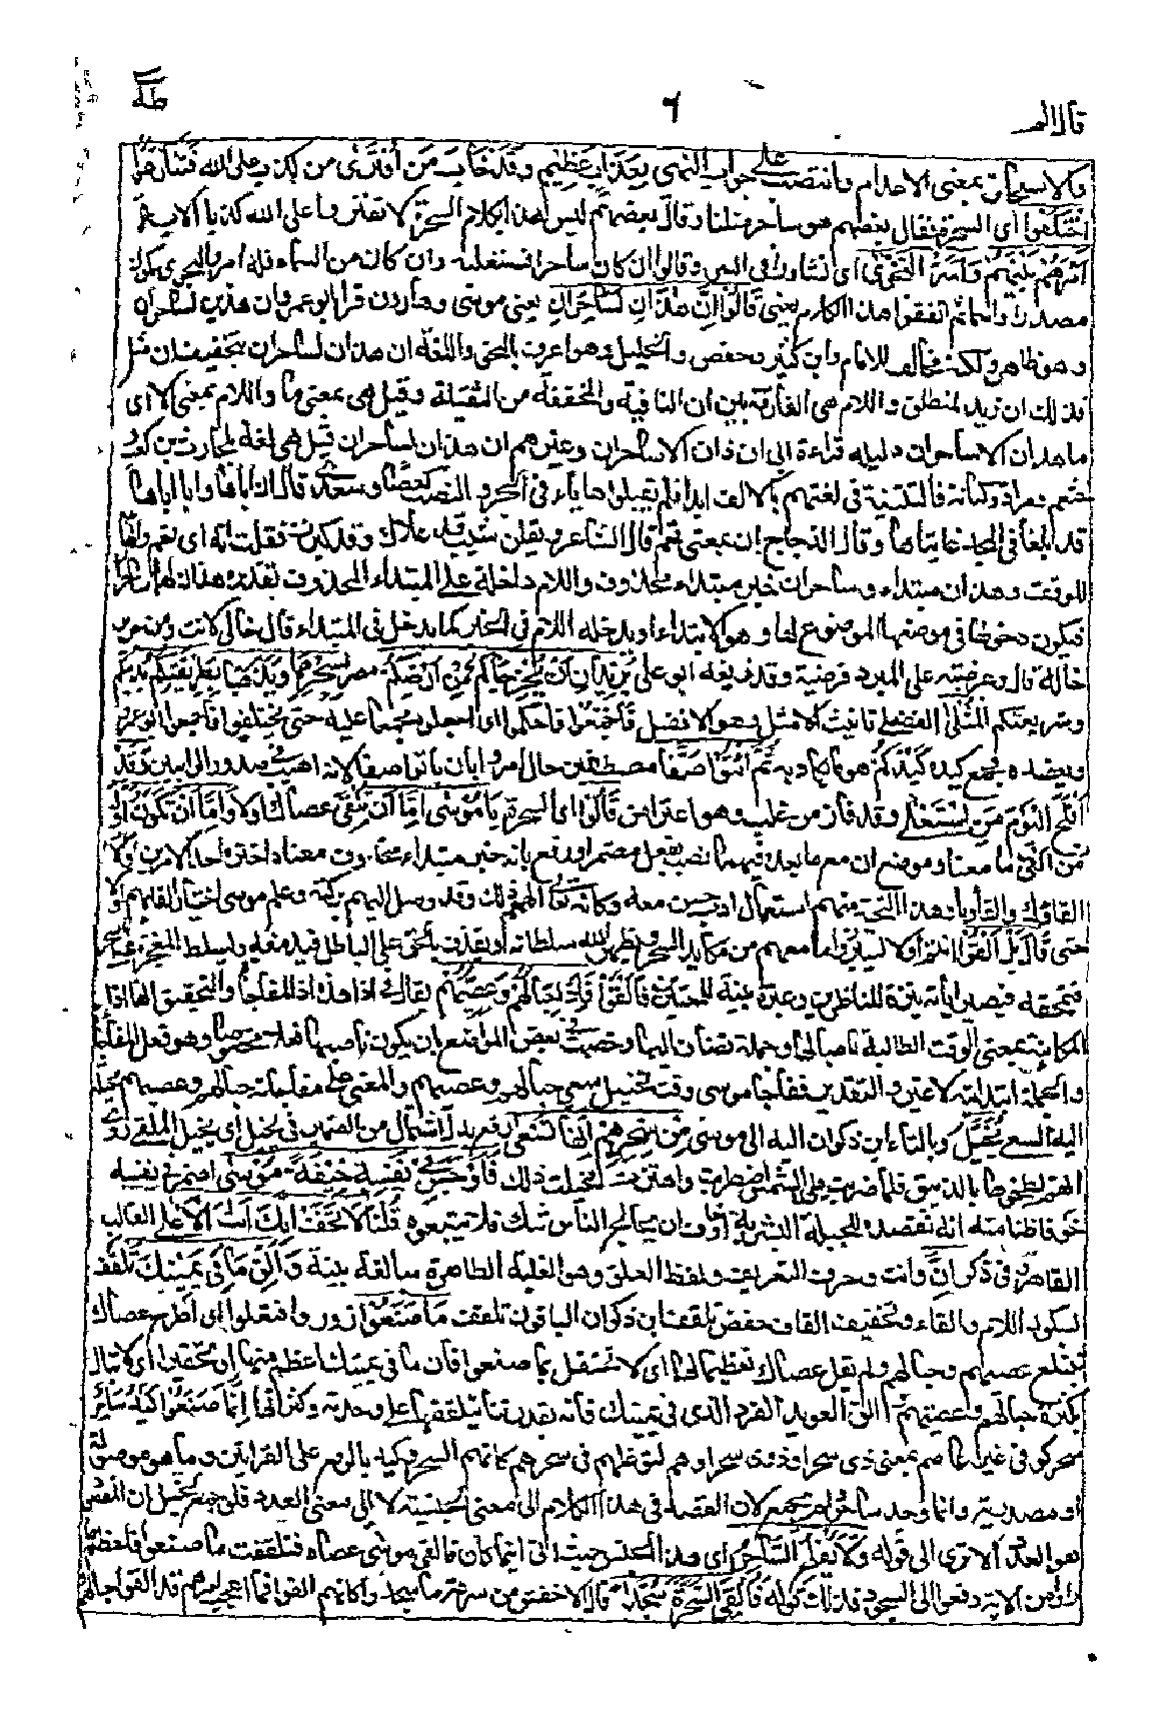 طه
٦
قال الم
والاسحات بمعنى الاعدام وانتصب على جواب النهى بِعَذَابٍ عَظِيمٍ وَقَدْ خَابَ مَنِ افْتَرَىٰ من كذب على الله فَتَنَازَعُوا
اختلفوا اى السحرة فقال بعضهم هو ساحر مثلنا وقال بعضهم ليس هذا بكلام السحرة لا تفتروا على الله كذبا الاية
أَمْرَهُمْ بَيْنَهُمْ وَأَسَرُّوا النَّجْوَىٰ اى تشاوروا فى السر وقالوا ان كان ساحرا فسنغلبه وان كان من السماء فله امر والنجوى يكون
مصدرا واسما ثم لفقوا هذا الكلام يعنى قَالُوا إِنْ هَٰذَانِ لَسَاحِرَانِ يعنى موسى وهارون قرا ابو عمرو ان هذين لساحران
وهو ظاهر ولكنه مخالف للامام وابن كثير وحفص والخليل وهو اعرف بالنحو واللغة ان هذان لساحران بتخفيف ان مثل
قولك ان زيد لمنطلق واللام هى الفارقة بين ان النافية والمخففة من الثقيلة وقيل هى بمعنى ما واللام بمعنى الا اى
ما هذان الا ساحران دليله قراءة ابى ان ذان الا ساحران وغيرهم ان هذان لساحران قيل هى لغة بلحارث بن كعب
خثعم ومراد وكنانة فالتثنية فى لغتهم بالالف ابدا فلم يقلبوها ياء فى الجر والنصب كعصا وسعدى قال ان اباها وابا اباها
قد بلغا فى المجد غايتاها وقال الزجاج ان بمعنى نعم قال الشاعر ويقلن شيب قد علاك وقد كبرت فقلت انه اى نعم والهاء
للوقف وهذان مبتداء وساحران خبر مبتداء محذوف واللام داخلة على المبتداء المحذوف تقديره هذان لهما ساحران
فيكون دخولها فى موضعها الموضوع لها وهو الابتداء او يدخله اللام فى الخبر كما يدخل فى المبتداء قال خالى لانت ومن جرير
خاله قال وعرضته على المبرد فرضيه وقد زيفه ابو على يُرِيدَانِ أَنْ يُخْرِجَاكُمْ مِنْ أَرْضِكُمْ مصر بِسِحْرِهِمَا وَيَذْهَبَا بِطَرِيقَتِكُمُ بدينكم
وشريعتكم الْمُثْلَىٰ الفضلى تانيث الامثل وهو الافضل فَأَجْمِعُوا فاحكموا اى اجعلوه مجمعا عليه حتى لا تختلفوا فاجمعوا ابو عمرو
ويعضده فجمع كيده كَيْدَكُمْ هو ما يكاد به ثُمَّ ائْتُوا صَفًّا مصطفين حال امروا بان ياتوا صفا لانه اهيب فى صدور الرايين وَقَدْ
أَفْلَحَ الْيَوْمَ مَنِ اسْتَعْلَىٰ وقد فاز من غلب وهو اعتراض قَالُوا اى السحرة يَا مُوسَىٰ إِمَّا أَنْ تُلْقِيَ عصاك اولا وَإِمَّا أَنْ نَكُونَ أَوَّلَ
مَنْ أَلْقَىٰ ما معنا وموضع ان مع ما بعده فيهما نصب بفعل مضمر او رفع بانه خبر مبتداء محذوف معناه اختر احد الامرين او الامر
القاؤك والقاؤنا وهذا التخيير منهم استعمال ادب حسن معه وكانه تعالى الهمهم ذلك وقد وصل اليهم بركته وعلم موسى اختيار القائهم اولا
حتى قَالَ بَلْ أَلْقُوا انتم اولا ليبرزوا ما معهم من مكايد السحر ويظهر الله سلطانه او يقذف بالحق على الباطل فيدمغه ويسلط المعجزة على السحر
فتمحقه فيصير اية نيرة للناظرين وعبرة بينة للمعتبرين فالقوا فَإِذَا حِبَالُهُمْ وَعِصِيُّهُمْ يقال فى اذا هذه اذا المفاجاة والتحقيق انها اذا
الكائنة بمعنى الوقت الطالبة ناصبا لها وجملة تضاف اليها وخصت فى بعض المواضع بان يكون ناصبها فعلا مخصوصا وهو فعل المفاجاة
والجملة ابتدائية لا غير والتقدير ففاجأ موسى وقت تخييل سعى حبالهم وعصيهم والمعنى على مفاجاته حبالهم وعصيهم مخيلة
اليه السعى يُخَيَّلُ وبالتاء ابن ذكوان إِلَيْهِ الى موسى مِنْ سِحْرِهِمْ أَنَّهَا تَسْعَىٰ رفع بدل اشتمال من الضمير فى يخيل اى يخيل الملقى روى
انهم لطخوها بالزيبق فلما ضربت عليها الشمس اضطربت واهتزت فخيلت ذلك فَأَوْجَسَ فِي نَفْسِهِ خِيفَةً مُوسَىٰ اضمر فى نفسه
خوفا ظنا منه انه تقصده للجبلة البشرية او خاف ان يخالج الناس شك فلا يتبعوه قُلْنَا لَا تَخَفْ إِنَّكَ أَنْتَ الْأَعْلَىٰ الغالب
القاهر وفى ذكر ان وانت وحرف التعريف ولفظ العلو وهو الغلبة الظاهرة مبالغة بينة وَأَلْقِ مَا فِي يَمِينِكَ تَلْقَفْ
بسكون اللام والفاء وتخفيف القاف حفص تلقف ابن ذكوان الباقون تلقف مَا صَنَعُوا زوروا وافتعلوا اى اطرح عصاك
تبتلع عصيهم وحبالهم ولم يقل عصاك تعظيما لها اى لا تحتفل بما صنعوا فان ما فى يمينك اعظم منها او تحقيرا اى لا تبال
بكثرة حبالهم وعصيهم والق العويد الفرد الذى فى يمينك فانه بقدرتنا يتلقفها على وحدته وكثرتها إِنَّمَا صَنَعُوا كَيْدُ سَاحِرٍ
سحر كوفى غير عاصم بمعنى ذى سحر او ذوى سحر او هم لتوغلهم فى سحرهم كانهم السحر وكيد بالرفع على القراءتين وما موصولة
او مصدرية وانما وحد ساحر ولم يجمع لان القصد فى هذا الكلام الى معنى الجنسية لا الى معنى العدد فلو جمع لخيل ان المقصود
هو العدد الا ترى الى قوله وَلَا يُفْلِحُ السَّاحِرُ اى هذا الجنس حَيْثُ أَتَىٰ اينما كان فالقى موسى عصاه فتلقفت ما صنعوا فلعظم
ما راوا من الاية وقعوا الى السجود فذلك قوله فَأُلْقِيَ السَّحَرَةُ سُجَّدًا قال الاخفش من سرعة ما سجدوا كانهم القوا فما اعجب امرهم قد القوا حبالهم